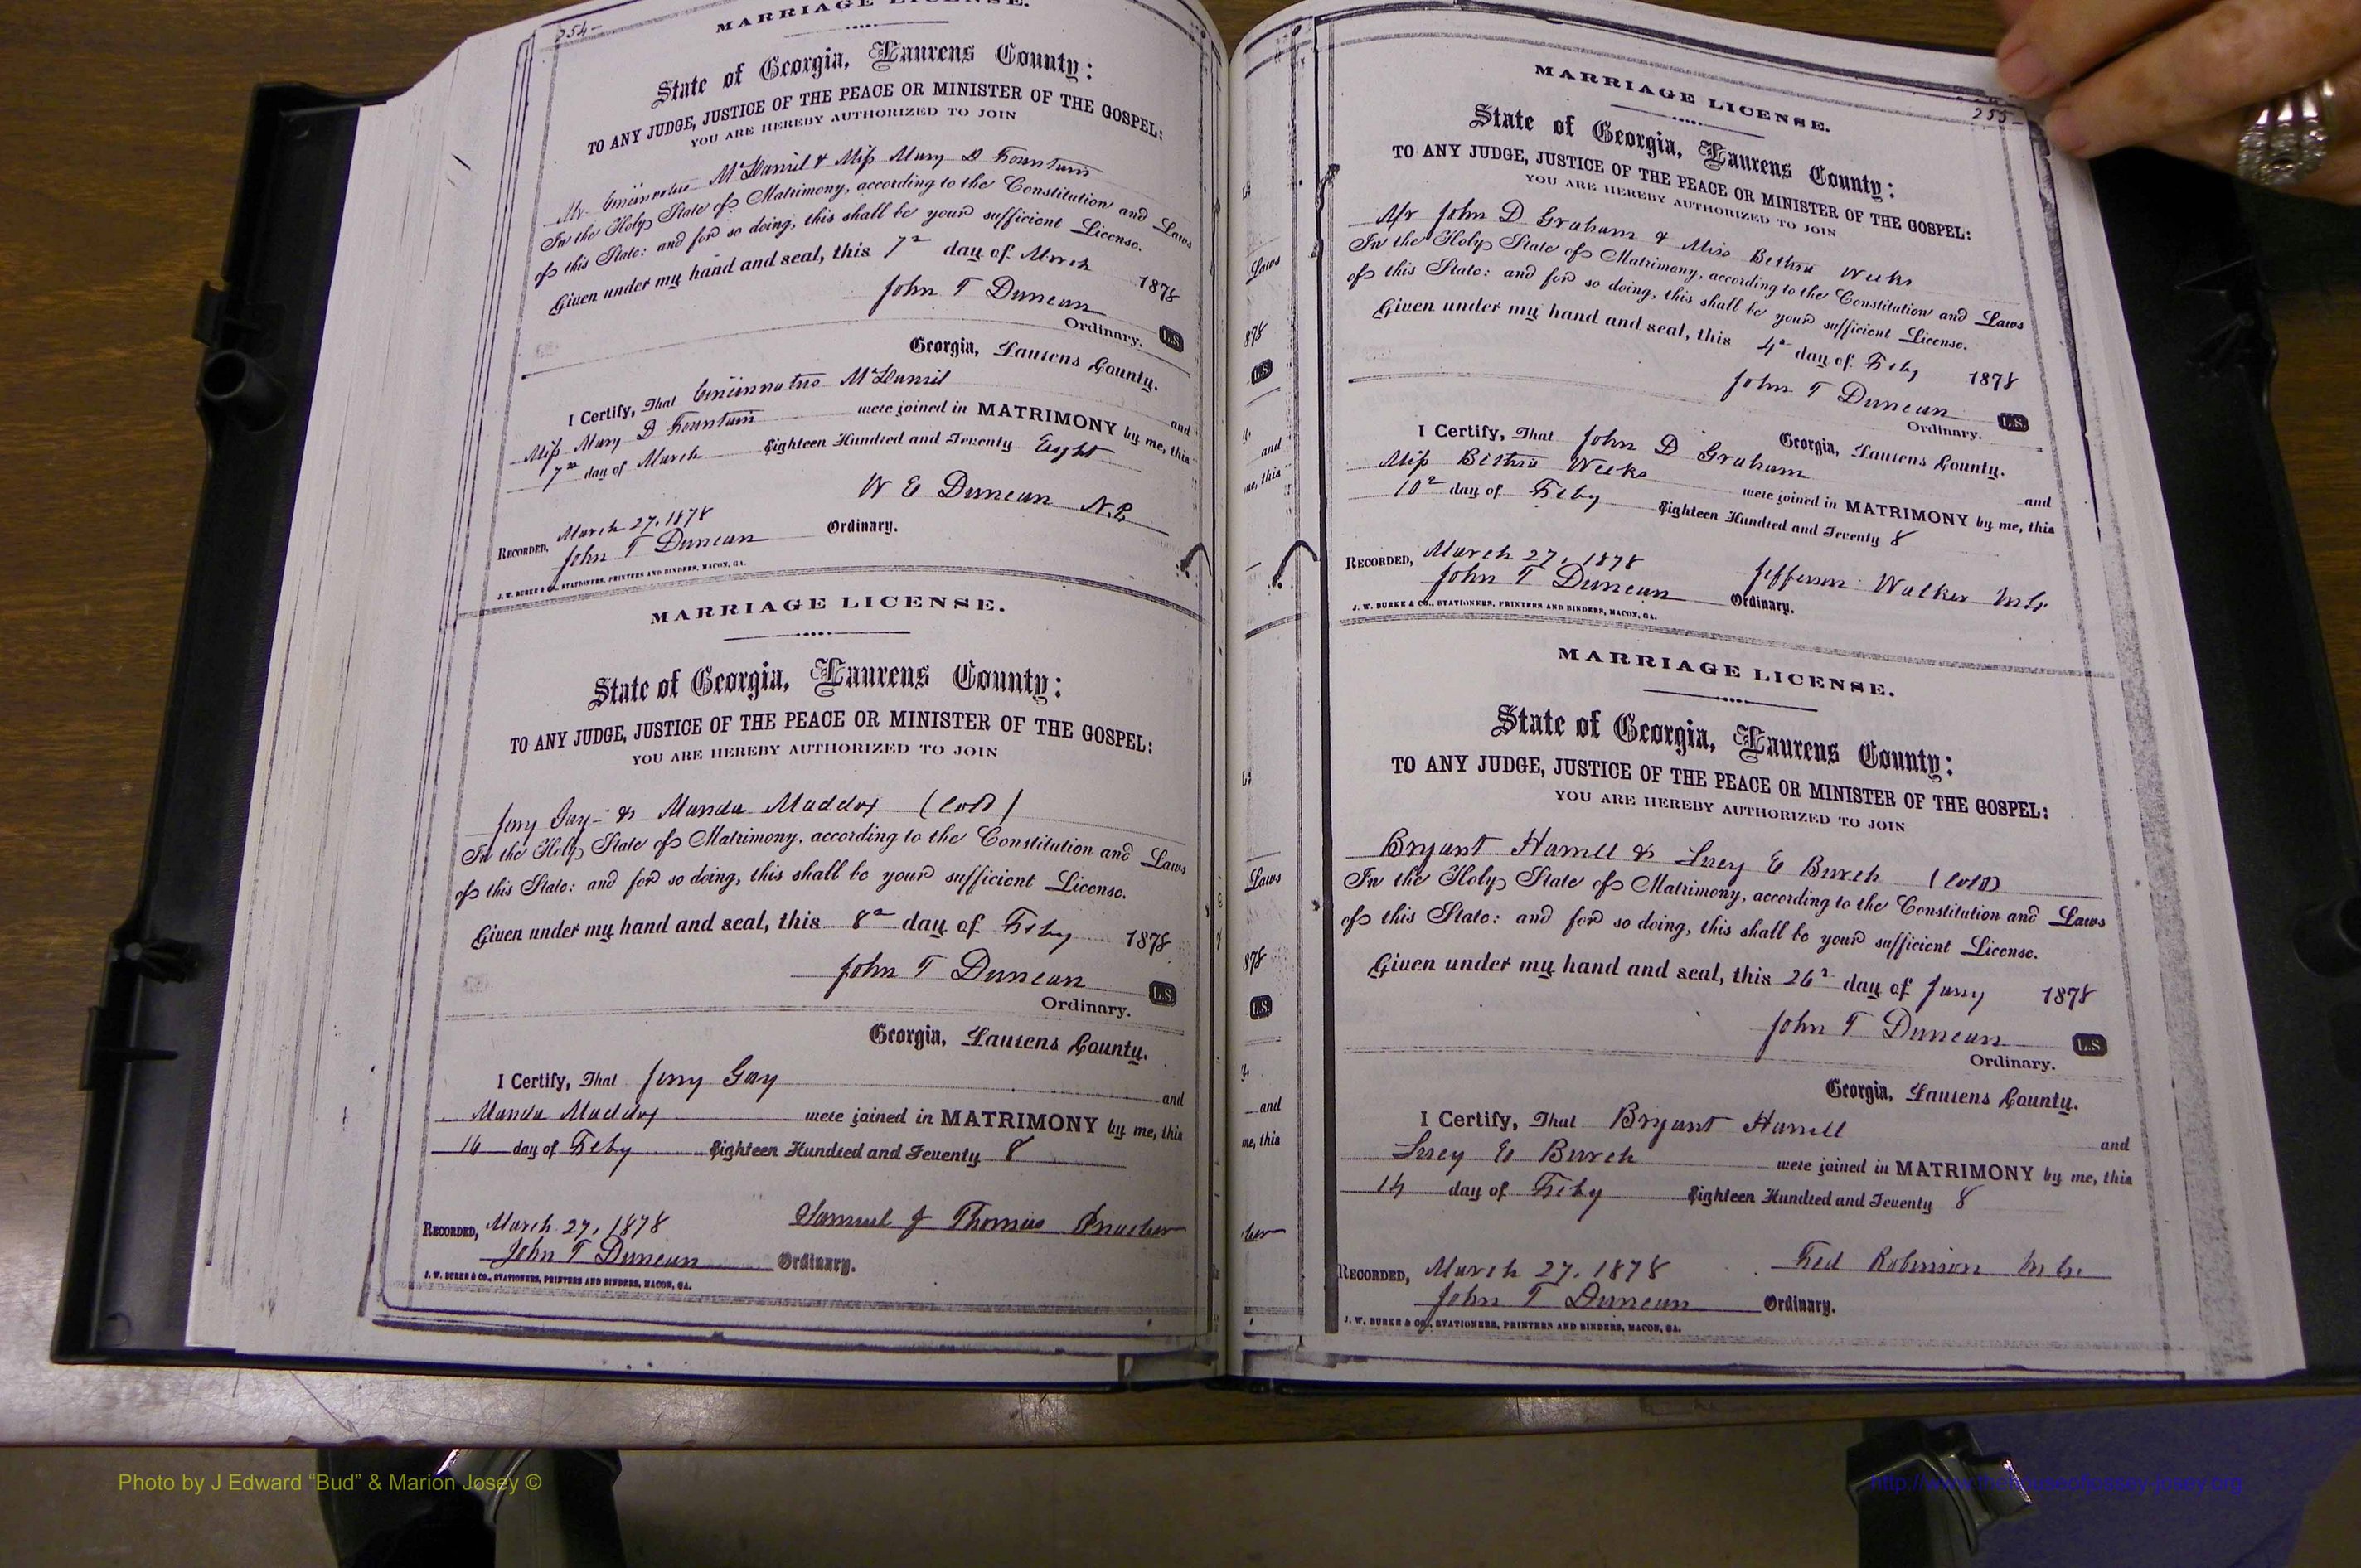 254-
MARRIAGE LICENSE.
State of Georgia, Laurens County:
TO ANY JUDGE, JUSTICE OF THE PEACE OR MINISTER OF THE GOSPEL:
YOU ARE HEREBY AUTHORIZED TO JOIN
Mr Cincinnatus McDaniel & Miss Mary D Fountain
In the Holy State of Matrimony, according to the Constitution and Laws
of this State: and for so doing, this shall be your sufficient License.
Given under my hand and seal, this 7th day of March 1878
John T Duncan
Ordinary. L.S.
Georgia, Laurens County.
I Certify, That Cincinnatus McDaniel and
Miss Mary D Fountain were joined in MATRIMONY by me, this
7th day of March Eighteen Hundred and Seventy Eight
W E Duncan N.P.
RECORDED, March 27, 1878
John T Duncan Ordinary.
J. W. BURKE & CO., STATIONERS, PRINTERS AND BINDERS, MACON, GA.
MARRIAGE LICENSE.
State of Georgia, Laurens County:
TO ANY JUDGE, JUSTICE OF THE PEACE OR MINISTER OF THE GOSPEL:
YOU ARE HEREBY AUTHORIZED TO JOIN
Jerry Gay & Manda Maddox (Cold)
In the Holy State of Matrimony, according to the Constitution and Laws
of this State: and for so doing, this shall be your sufficient License.
Given under my hand and seal, this 8th day of Feby 1878
John T Duncan L.S.
Ordinary.
Georgia, Laurens County.
I Certify, That Jerry Gay and
Manda Maddox were joined in MATRIMONY by me, this
day of Feby Eighteen Hundred and Seventy 8
Samuel J Thomas Preacher
RECORDED, March 27, 1878
John T Duncan Ordinary.
J. W. BURKE & CO., STATIONERS, PRINTERS AND BINDERS, MACON, GA.
Laws
878
L.S.
and
me, this
Laws
878
L.S.
and
me, this
255-
MARRIAGE LICENSE.
State of Georgia, Laurens County:
TO ANY JUDGE, JUSTICE OF THE PEACE OR MINISTER OF THE GOSPEL:
YOU ARE HEREBY AUTHORIZED TO JOIN
Mr John D Graham & Miss Bethia Weeks
In the Holy State of Matrimony, according to the Constitution and Laws
of this State: and for so doing, this shall be your sufficient License.
Given under my hand and seal, this 4th day of Feby 1878
John T Duncan L.S.
Ordinary.
Georgia, Laurens County.
I Certify, That John D Graham and
Miss Bethia Weeks were joined in MATRIMONY by me, this
10th day of Feby Eighteen Hundred and Seventy 8
Jefferson Walker M.G.
RECORDED, March 27, 1878
John T Duncan Ordinary.
J. W. BURKE & CO., STATIONERS, PRINTERS AND BINDERS, MACON, GA.
MARRIAGE LICENSE.
State of Georgia, Laurens County:
TO ANY JUDGE, JUSTICE OF THE PEACE OR MINISTER OF THE GOSPEL:
YOU ARE HEREBY AUTHORIZED TO JOIN
Bryant Harrell & Lucy E Burch (Cold)
In the Holy State of Matrimony, according to the Constitution and Laws
of this State: and for so doing, this shall be your sufficient License.
Given under my hand and seal, this 26th day of Jany 1878
John T Duncan L.S.
Ordinary.
Georgia, Laurens County.
I Certify, That Bryant Harrell and
Lucy E Burch were joined in MATRIMONY by me, this
14 day of Feby Eighteen Hundred and Seventy 8
Fed Robinson M.G.
RECORDED, March 27, 1878
John T Duncan Ordinary.
J. W. BURKE & CO., STATIONERS, PRINTERS AND BINDERS, MACON, GA.
Photo by J Edward “Bud” & Marion Josey ©
http://www.thehouseofjossey-josey.org